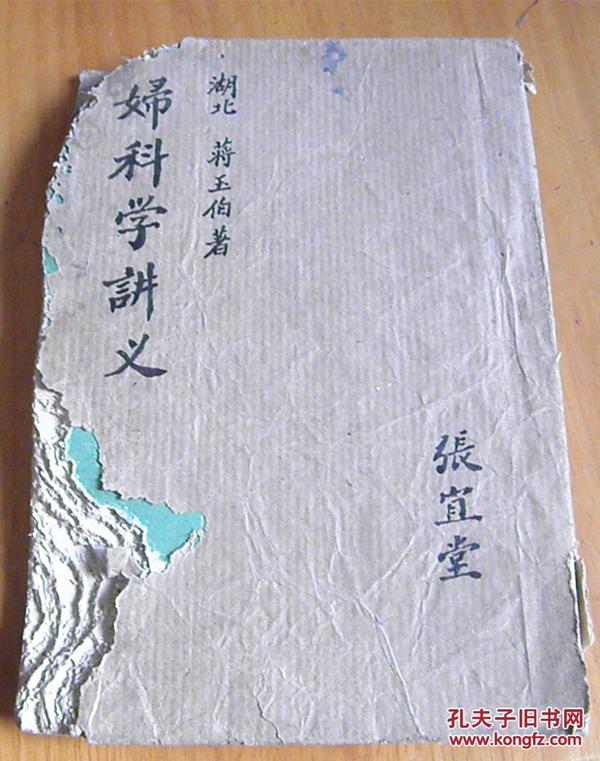 婦科学讲义
湖北 蒋玉伯著
張宜堂
孔夫子旧书网
www.kongfz.com